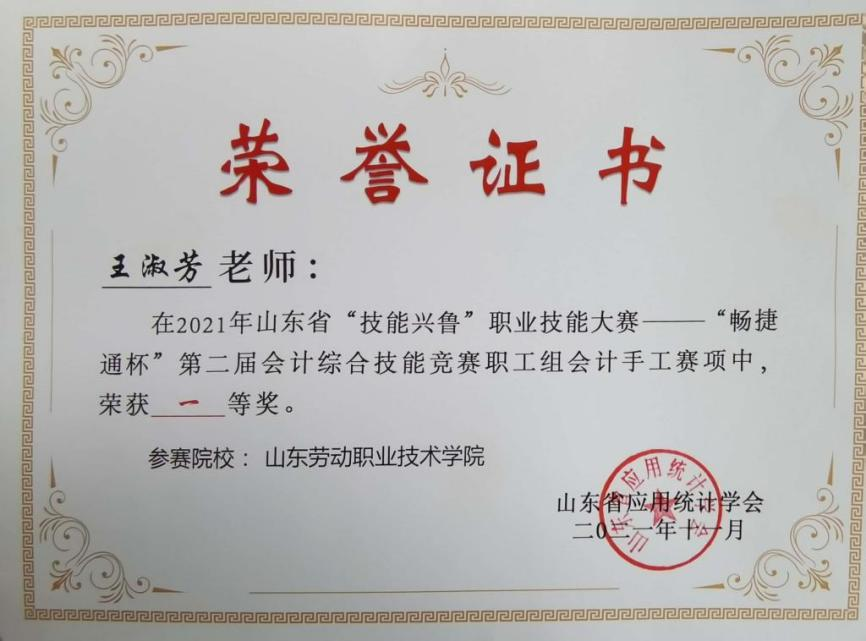 荣誉证书
王淑芳老师：
在2021年山东省“技能兴鲁”职业技能大赛———“畅捷
通杯”第二届会计综合技能竞赛职工组会计手工赛项中，
荣获 一 等奖。
参赛院校： 山东劳动职业技术学院
山东省应用统计学会
二〇二一年十一月
山东省应用统计学会